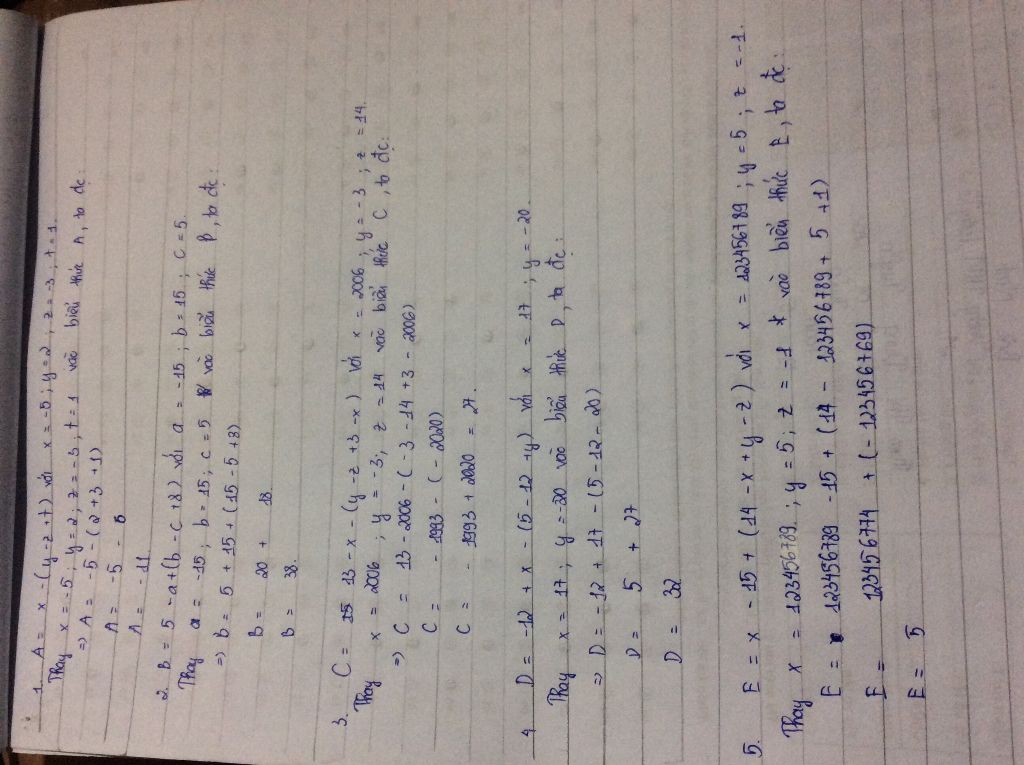 1. A = x - (y - z + t) với x = -5 ; y = 2 ; z = -3 ; t = 1.
Thay x = -5 ; y = 2 ; z = -3 ; t = 1 vào biểu thức A, ta đc:
=> A = -5 - (2 + 3 + 1)
A = -5 - 6
A = -11
2. B = 5 - a + (b - c + 8) với a = -15 ; b = 15 ; c = 5.
Thay a = -15 ; b = 15 ; c = 5 vào biểu thức B, ta đc:
=> B = 5 + 15 + (15 - 5 + 8)
B = 20 + 18.
B = 38.
3. C = 13 - x - (y - z + 3 - x) với x = 2006 ; y = -3 ; z = 14.
Thay x = 2006 ; y = -3 ; z = 14 vào biểu thức C, ta đc:
=> C = 13 - 2006 - (-3 - 14 + 3 - 2006)
C = -1993 - (-2020)
C = -1993 + 2020 = 27.
4. D = -12 + x - (5 - 12 + y) với x = 17 ; y = -20.
Thay x = 17 ; y = -20 vào biểu thức D, ta đc:
=> D = -12 + 17 - (5 - 12 - 20)
D = 5 + 27
D = 32
5. E = x - 15 + (14 - x + y - z) với x = 123456789 ; y = 5 ; z = -1.
Thay x = 123456789 ; y = 5 ; z = -1 vào biểu thức E, ta đc:
E = 123456789 - 15 + (14 - 123456789 + 5 + 1)
E = 123456774 + (-123456769)
E = 5